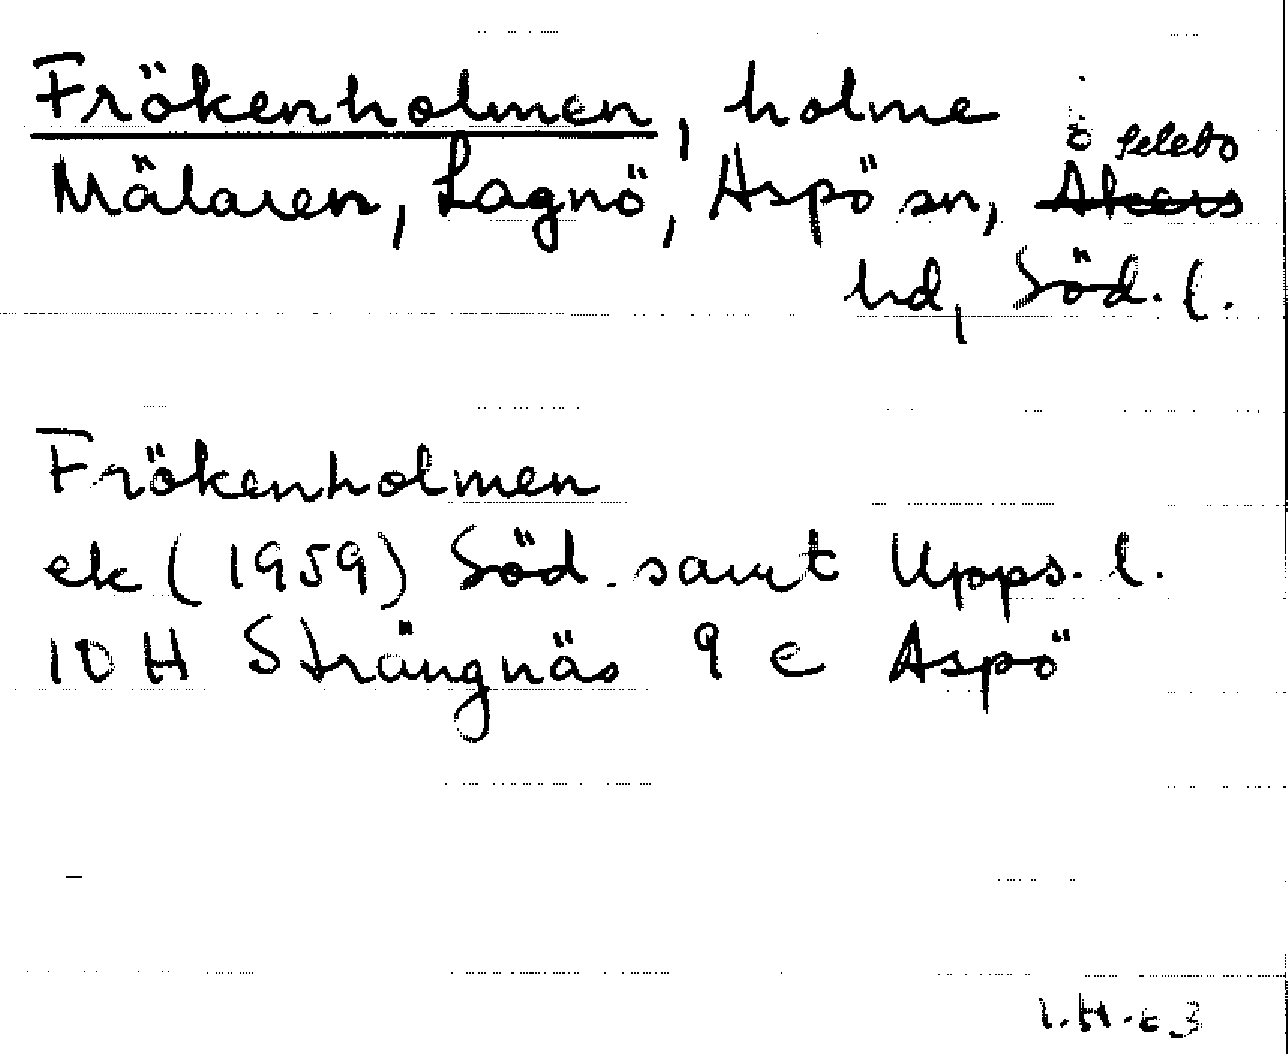 Frökenholmen, holme
Mälaren, Lagnö, Aspö sn, Selebo
Åkers
hd, Söd. l.
Frökenholmen
ek (1959) Söd. samt Upps. l.
10 H Strängnäs 9 c Aspö